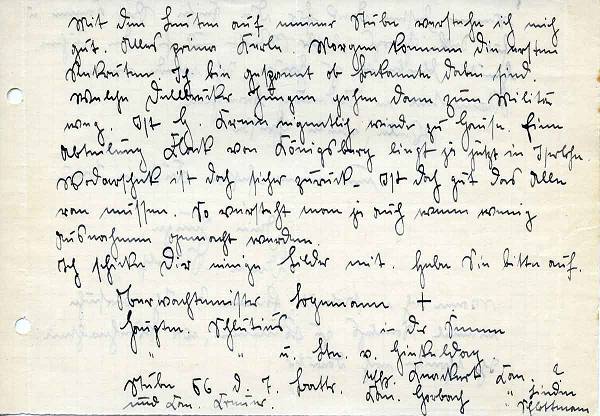 Mit den Leuten auf meiner Stube verstehe ich mich
gut. Alles prima Kerle. Morgen kommen die ersten
Rekruten. Ich bin gespannt ob Bekannte dabei sind.
Welche Dellbrücker Jungen gehen denn zum Militär
weg. Ist H. eigentlich wieder zu Hause. Eine
Abteilung Flack von Königsberg liegt ja jetzt in Iserlohn.
ist doch sicher zurück. Ist doch gut das Alle
ran müssen. So versteht man ja auch wenn wenig
Ausnahmen gemacht werden.
Ich schicke Dir einige Bilder mit. Hebe Sie bitte auf.
Oberwachtmeister Logemann +
Hauptm. Schlutius in der Sonne
" " u. Ltn. v. Hinkeldey
Stube 66 d. 7. Battr. Kan.
und Kan. Kan. "